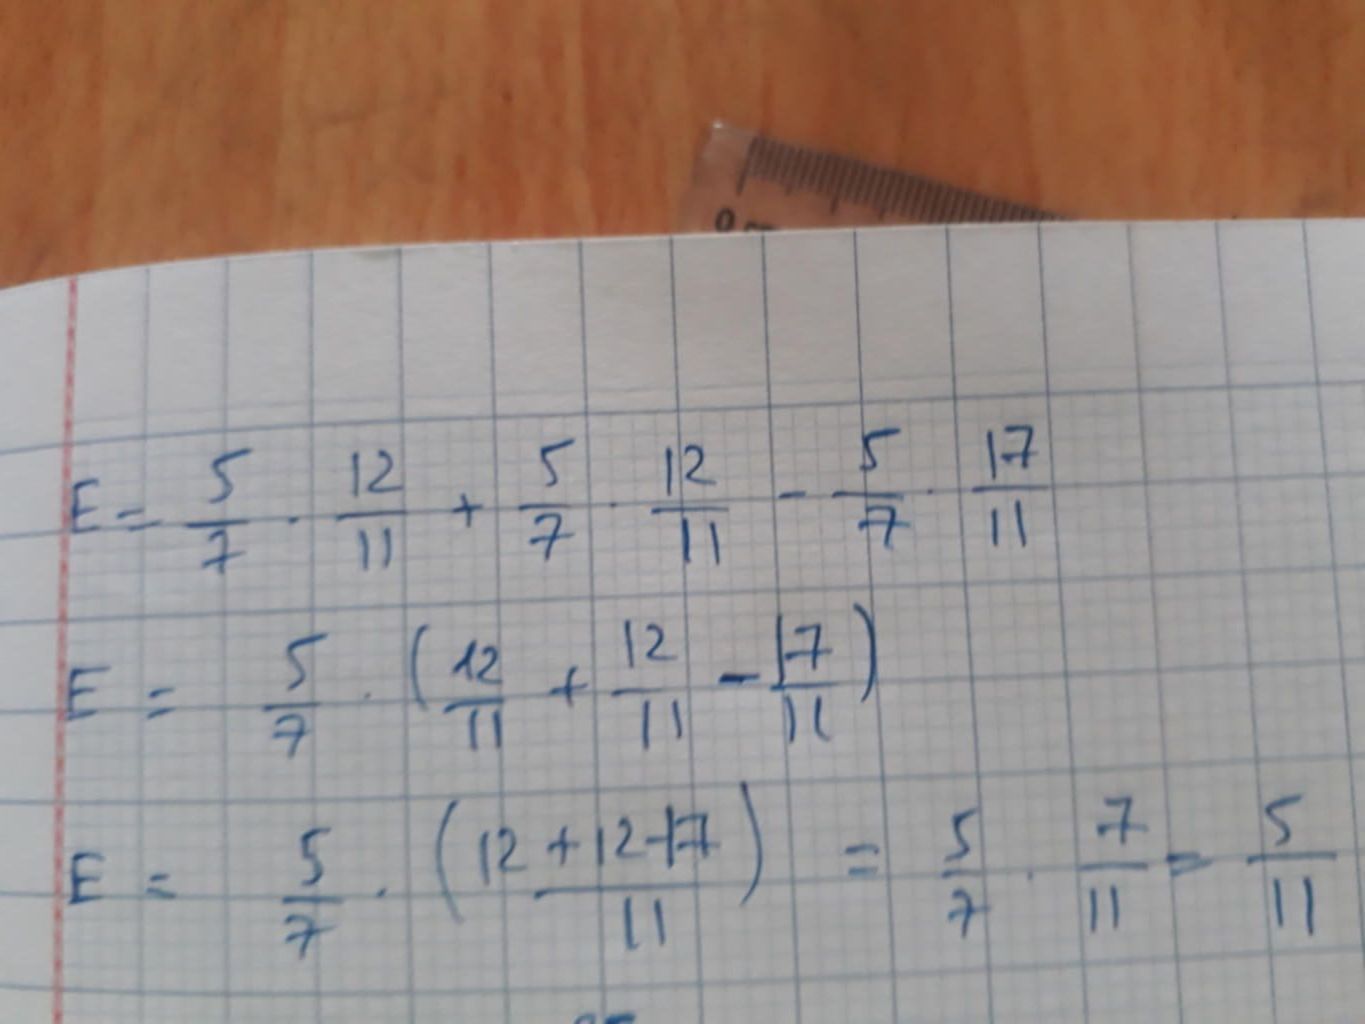 E = 5/7 · 12/11 + 5/7 · 12/11 - 5/7 · 17/11
E = 5/7 · (12/11 + 12/11 - 17/11)
E = 5/7 · ((12 + 12 - 17)/11) = 5/7 · 7/11 = 5/11